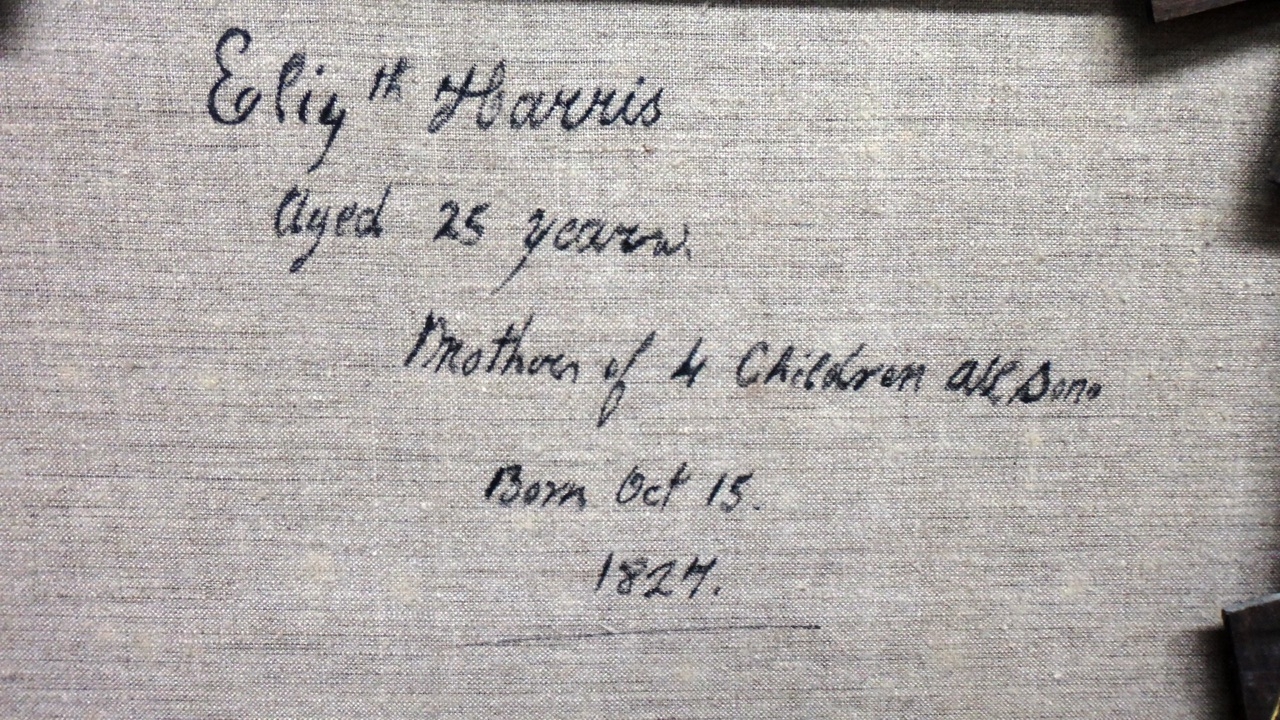 Eliz th Harris
Aged 25 years.
Mother of 4 Children all Sons
Born Oct 15.
1827.